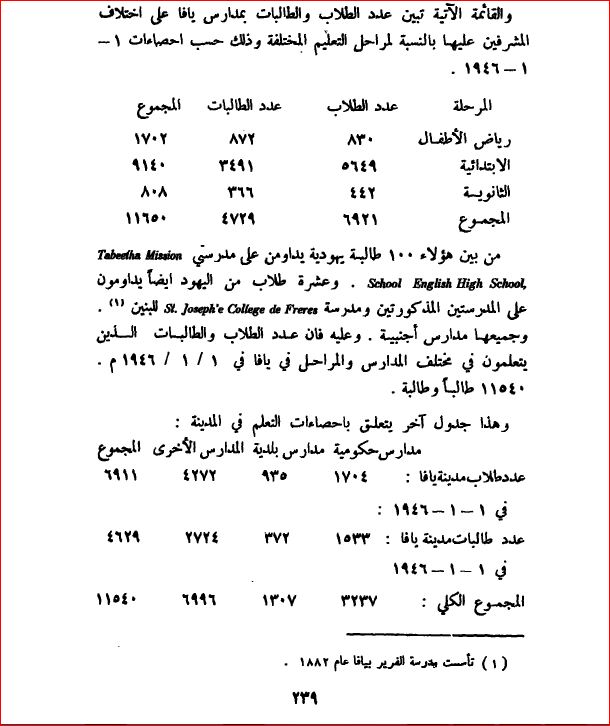 والقائمة الآتية تبين عدد الطلاب والطالبات بمدارس يافا على اختلاف
المشرفين عليها بالنسبة لمراحل التعليم المختلفة وذلك حسب احصاءات ١ –
١ – ١٩٤٦ .
المرحلة عدد الطلاب عدد الطالبات المجموع
رياض الأطفال ٨٣٠ ٨٧٢ ١٧٠٢
الابتدائية ٥٦٤٩ ٣٤٩١ ٩١٤٠
الثانوية ٤٤٢ ٣٦٦ ٨٠٨
المجموع ٦٩٢١ ٤٧٢٩ ١١٦٥٠
من بين هؤلاء ١٠٠ طالبة يهودية يداومن على مدرستي Tabeetha Mission
School English High School, . وعشرة طلاب من اليهود ايضاً يداومون
على المدرستين المذكورتين ومدرسة St. Joseph'e College de Freres للبنين (١) .
وجميعها مدارس أجنبية . وعليه فان عدد الطلاب والطالبات الذين
يتعلمون في مختلف المدارس والمراحل في يافا في ١ / ١ / ١٩٤٦ م .
١١٥٤٠ طالباً وطالبة .
وهذا جدول آخر يتعلق باحصاءات التعلم في المدينة :
مدارس حكومية مدارس بلدية المدارس الأخرى المجموع
عدد طلاب مدينة يافا : ١٧٠٤ ٩٣٥ ٤٢٧٢ ٦٩١١
في ١ – ١ – ١٩٤٦ :
عدد طالبات مدينة يافا : ١٥٣٣ ٣٧٢ ٢٧٢٤ ٤٦٢٩
في ١ – ١ – ١٩٤٦
المجموع الكلي : ٣٢٣٧ ١٣٠٧ ٦٩٩٦ ١١٥٤٠
(١) تأسست مدرسة الفرير بيافا عام ١٨٨٢ .
٢٣٩